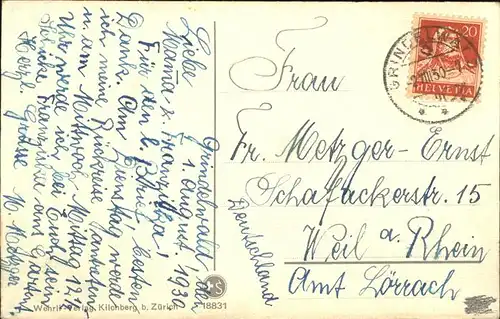 Grindelwald, den
1. August. 1930
Liebe
Mama u. Franziska!
Für den l. Brief besten
Dank. Am Dienstag werde
ich meine Rückreise antreten
u. am Mittwoch Mittag 12 15
Uhr werde ich bei Euch sein
Franziska am Bahnhof
Herzl. Grüsse
M Metzger
Frau
Fr. Metzger-Ernst
Schafackerstr. 15
Weil a. Rhein
Amt Lörrach
Deutschland
Wehrli-Verlag, Kilchberg b. Zürich
18831
20
HELVETIA
GRINDELWALD